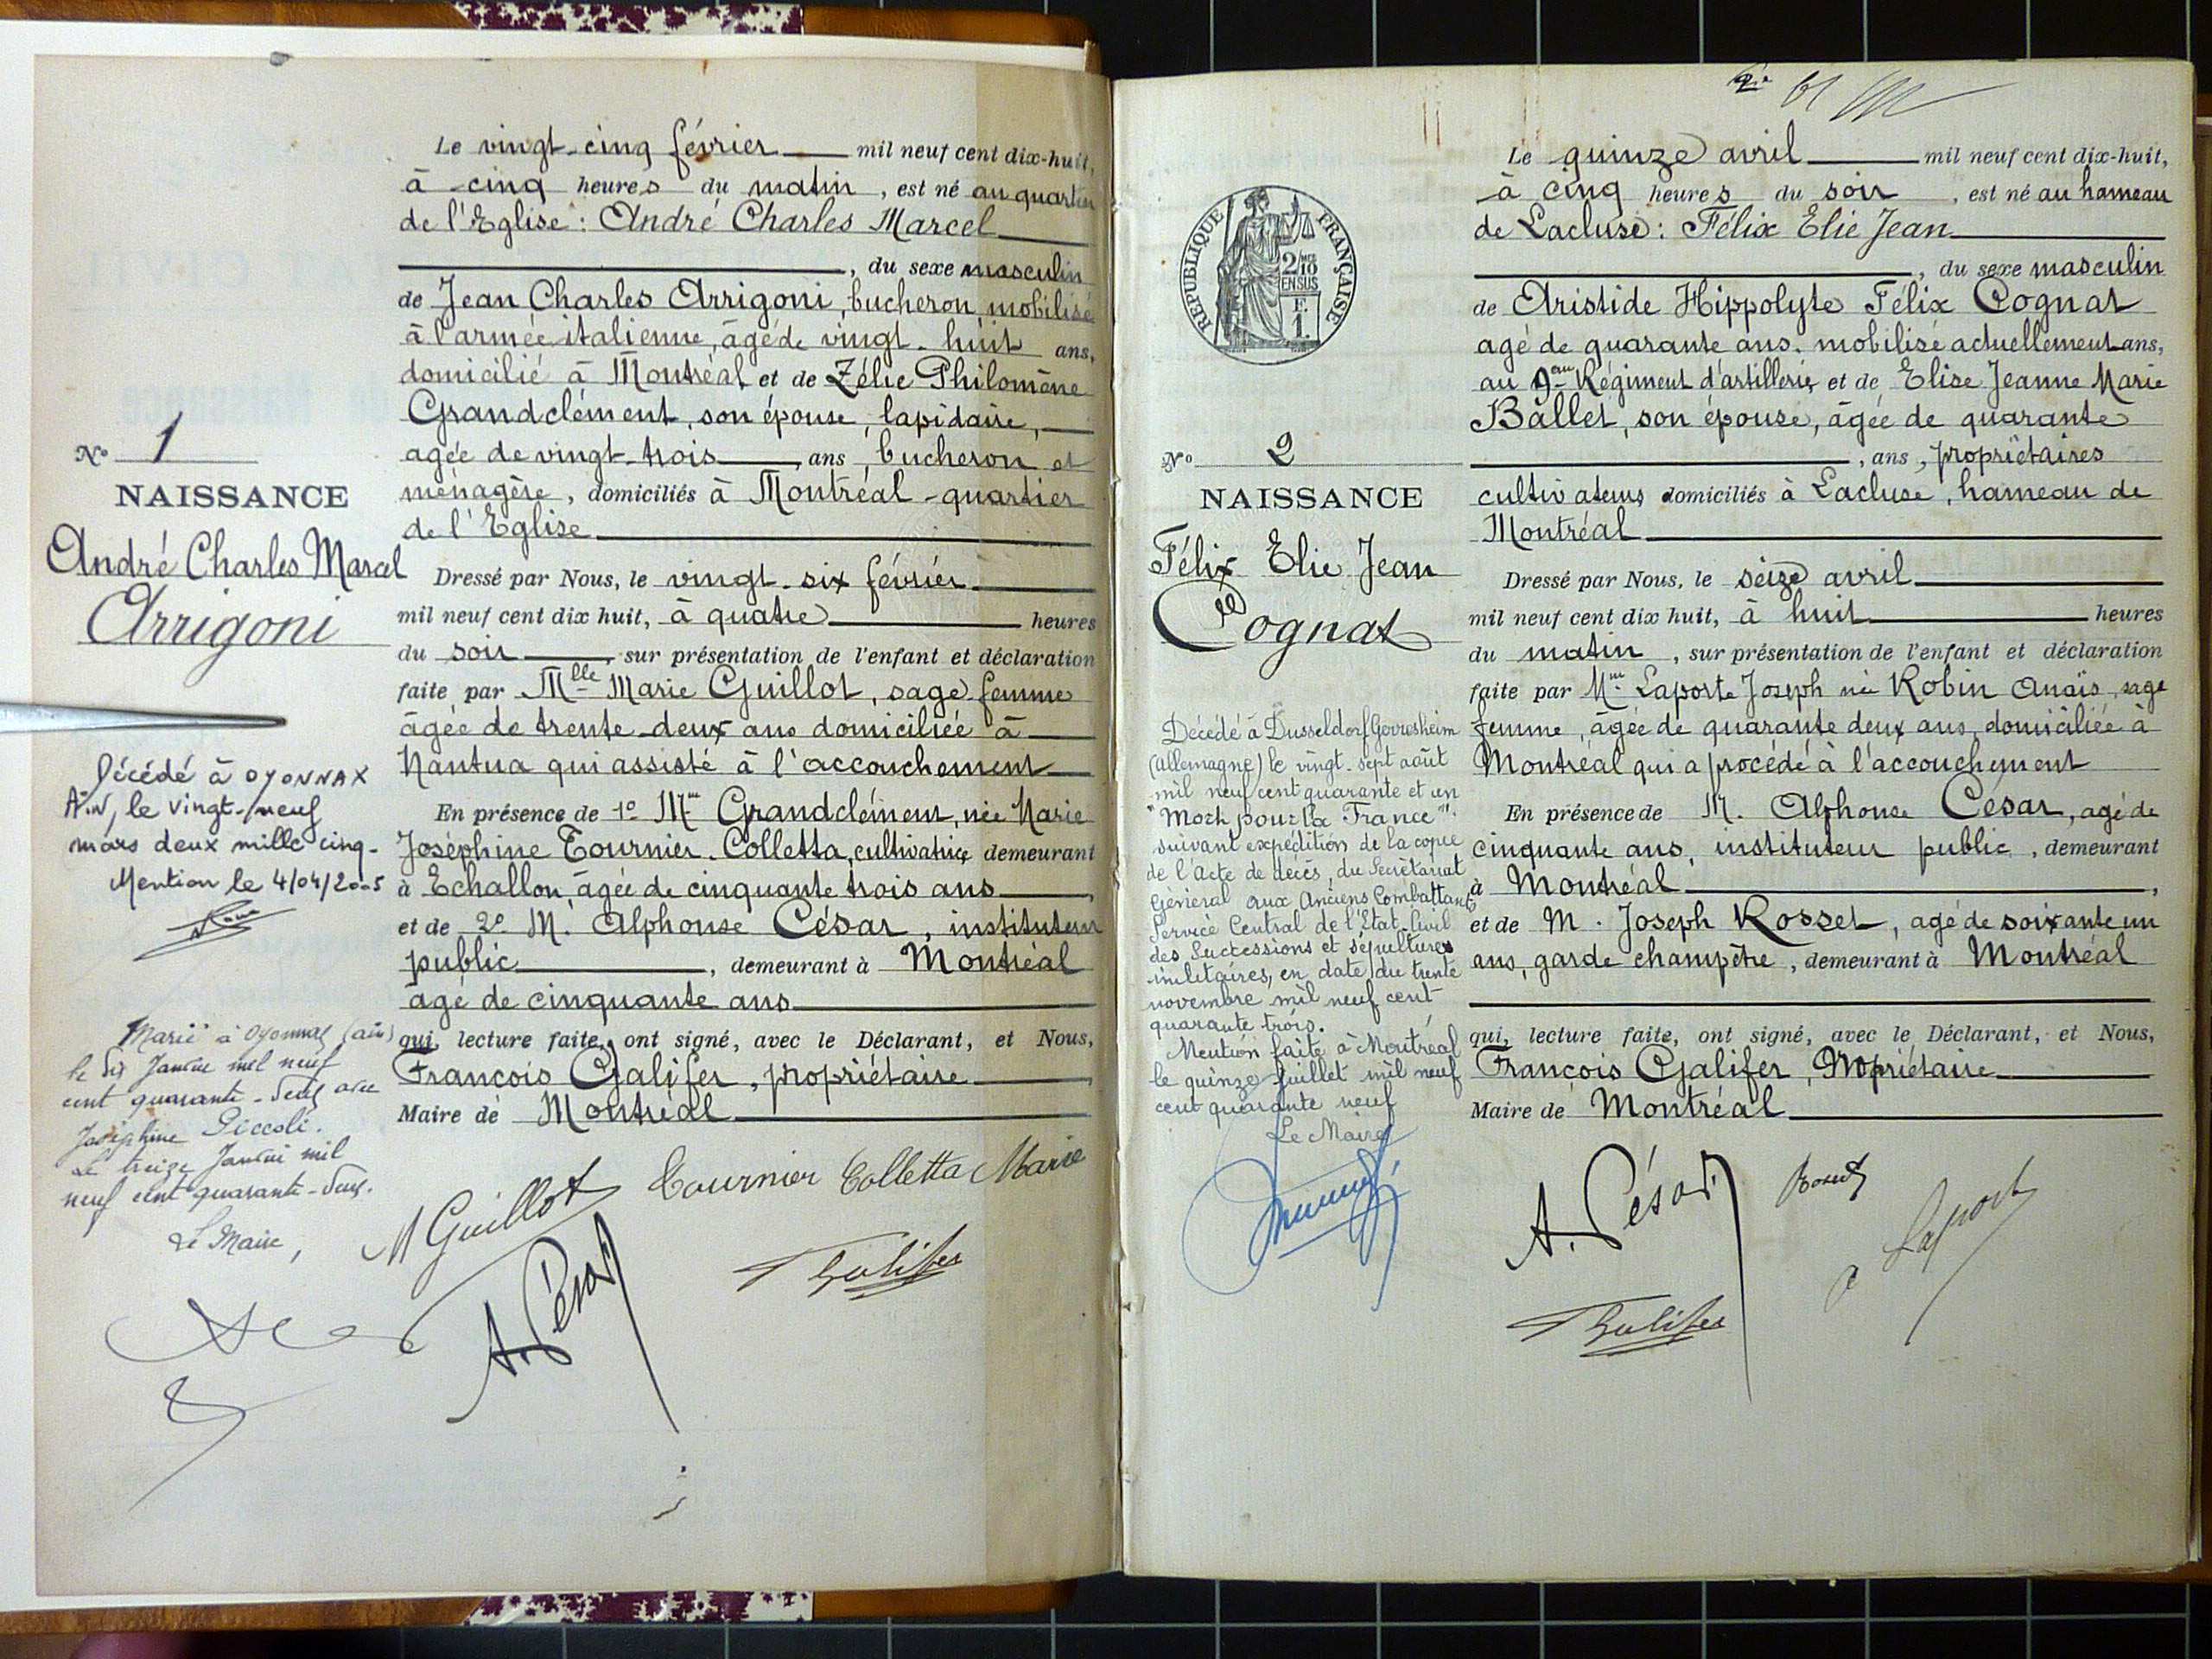 Le vingt-cinq février mil neuf cent dix-huit,
à cinq heures du matin, est né au quartier
de l'Eglise : André Charles Marcel
, du sexe masculin
de Jean Charles Arrigoni, bucheron, mobilisé
à l'armée italienne, âgé de vingt-huit ans,
domicilié à Montréal et de Zélie Philomène
Grandclément, son épouse, lapidaire,
agée de vingt-trois ans, bucheron et
ménagère, domiciliés à Montréal - quartier
de l'Eglise
Dressé par Nous, le vingt-six février
mil neuf cent dix huit, à quatre heures
du soir, sur présentation de l'enfant et déclaration
faite par Mlle Marie Guillot, sage femme
âgée de trente-deux ans domiciliée à
Nantua qui assisté à l'accouchement
En présence de 1° Me Grandclément, née Marie
Joséphine Tournier-Colletta, cultivatrice demeurant
à Echallon, âgée de cinquante trois ans,
et de 2° M. Alphonse César, instituteur
public, demeurant à Montréal
âgé de cinquante ans
qui, lecture faite, ont signé, avec le Déclarant, et Nous,
François Galifer, propriétaire
Maire de Montréal
M Guillot Tournier Colletta Marie
A. César
Galifer
N° 1
NAISSANCE
André Charles Marcel
Arrigoni
Décédé à OYONNAX
Ain, le vingt-neuf
mars deux mille cinq-
Mention le 4/04/2005
Marié à Oyonnax (ain)
le dix Janvier mil neuf
cent quarante-deux avec
Joséphine Piccoli.
Le treize Janvier mil
neuf cent quarante-deux.
Le Maire,
61
Le quinze avril mil neuf cent dix-huit,
à cinq heures du soir, est né au hameau
de Lacluse : Félix Elie Jean
, du sexe masculin
de Aristide Hippolyte Félix Cognat
agé de quarante ans, mobilisé actuellement ans,
au 9eme Régiment d'artillerie et de Elise Jeanne Marie
Ballet, son épouse, âgée de quarante
, ans, propriétaires
cultivateurs domiciliés à Lacluse, hameau de
Montréal
Dressé par Nous, le seize avril
mil neuf cent dix huit, à huit heures
du matin, sur présentation de l'enfant et déclaration
faite par Me Laporte Joseph née Robin Anaïs, sage
femme, âgée de quarante deux ans, domiciliée à
Montréal qui a procédé à l'accouchement
En présence de M. Alphonse César, agé de
cinquante ans, instituteur public, demeurant
à Montréal,
et de M. Joseph Rosset, agé de soixante un
ans, garde champêtre, demeurant à Montréal
qui, lecture faite, ont signé, avec le Déclarant, et Nous,
François Galifer, Propriétaire
Maire de Montréal
A. César Rosset Laporte
Galifer
REPUBLIQUE FRANÇAISE
2/10
EN SUS
F.
1.
N° 2
NAISSANCE
Félix Elie Jean
Cognat
Décédé à Dusseldorf Gerresheim
(Allemagne) le vingt-sept août
mil neuf cent quarante et un
"Mort pour la France"
suivant expédition de la copie
de l'acte de décès, du Secrétariat
Général aux Anciens Combattants
Service Central de l'Etat-Civil
des Successions et sépultures
militaires, en date du trente
novembre mil neuf cent
quarante trois.
Mention faite à Montréal
le quinze juillet mil neuf
cent quarante neuf
Le Maire